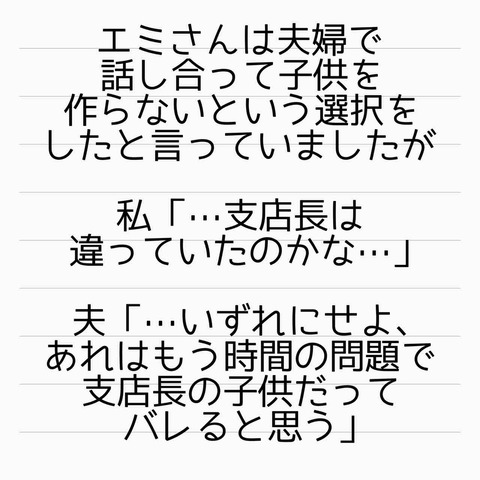 エミさんは夫婦で
話し合って子供を
作らないという選択を
したと言っていましたが
私「…支店長は
違っていたのかな…」
夫「…いずれにせよ、
あれはもう時間の問題で
支店長の子供だって
バレると思う」